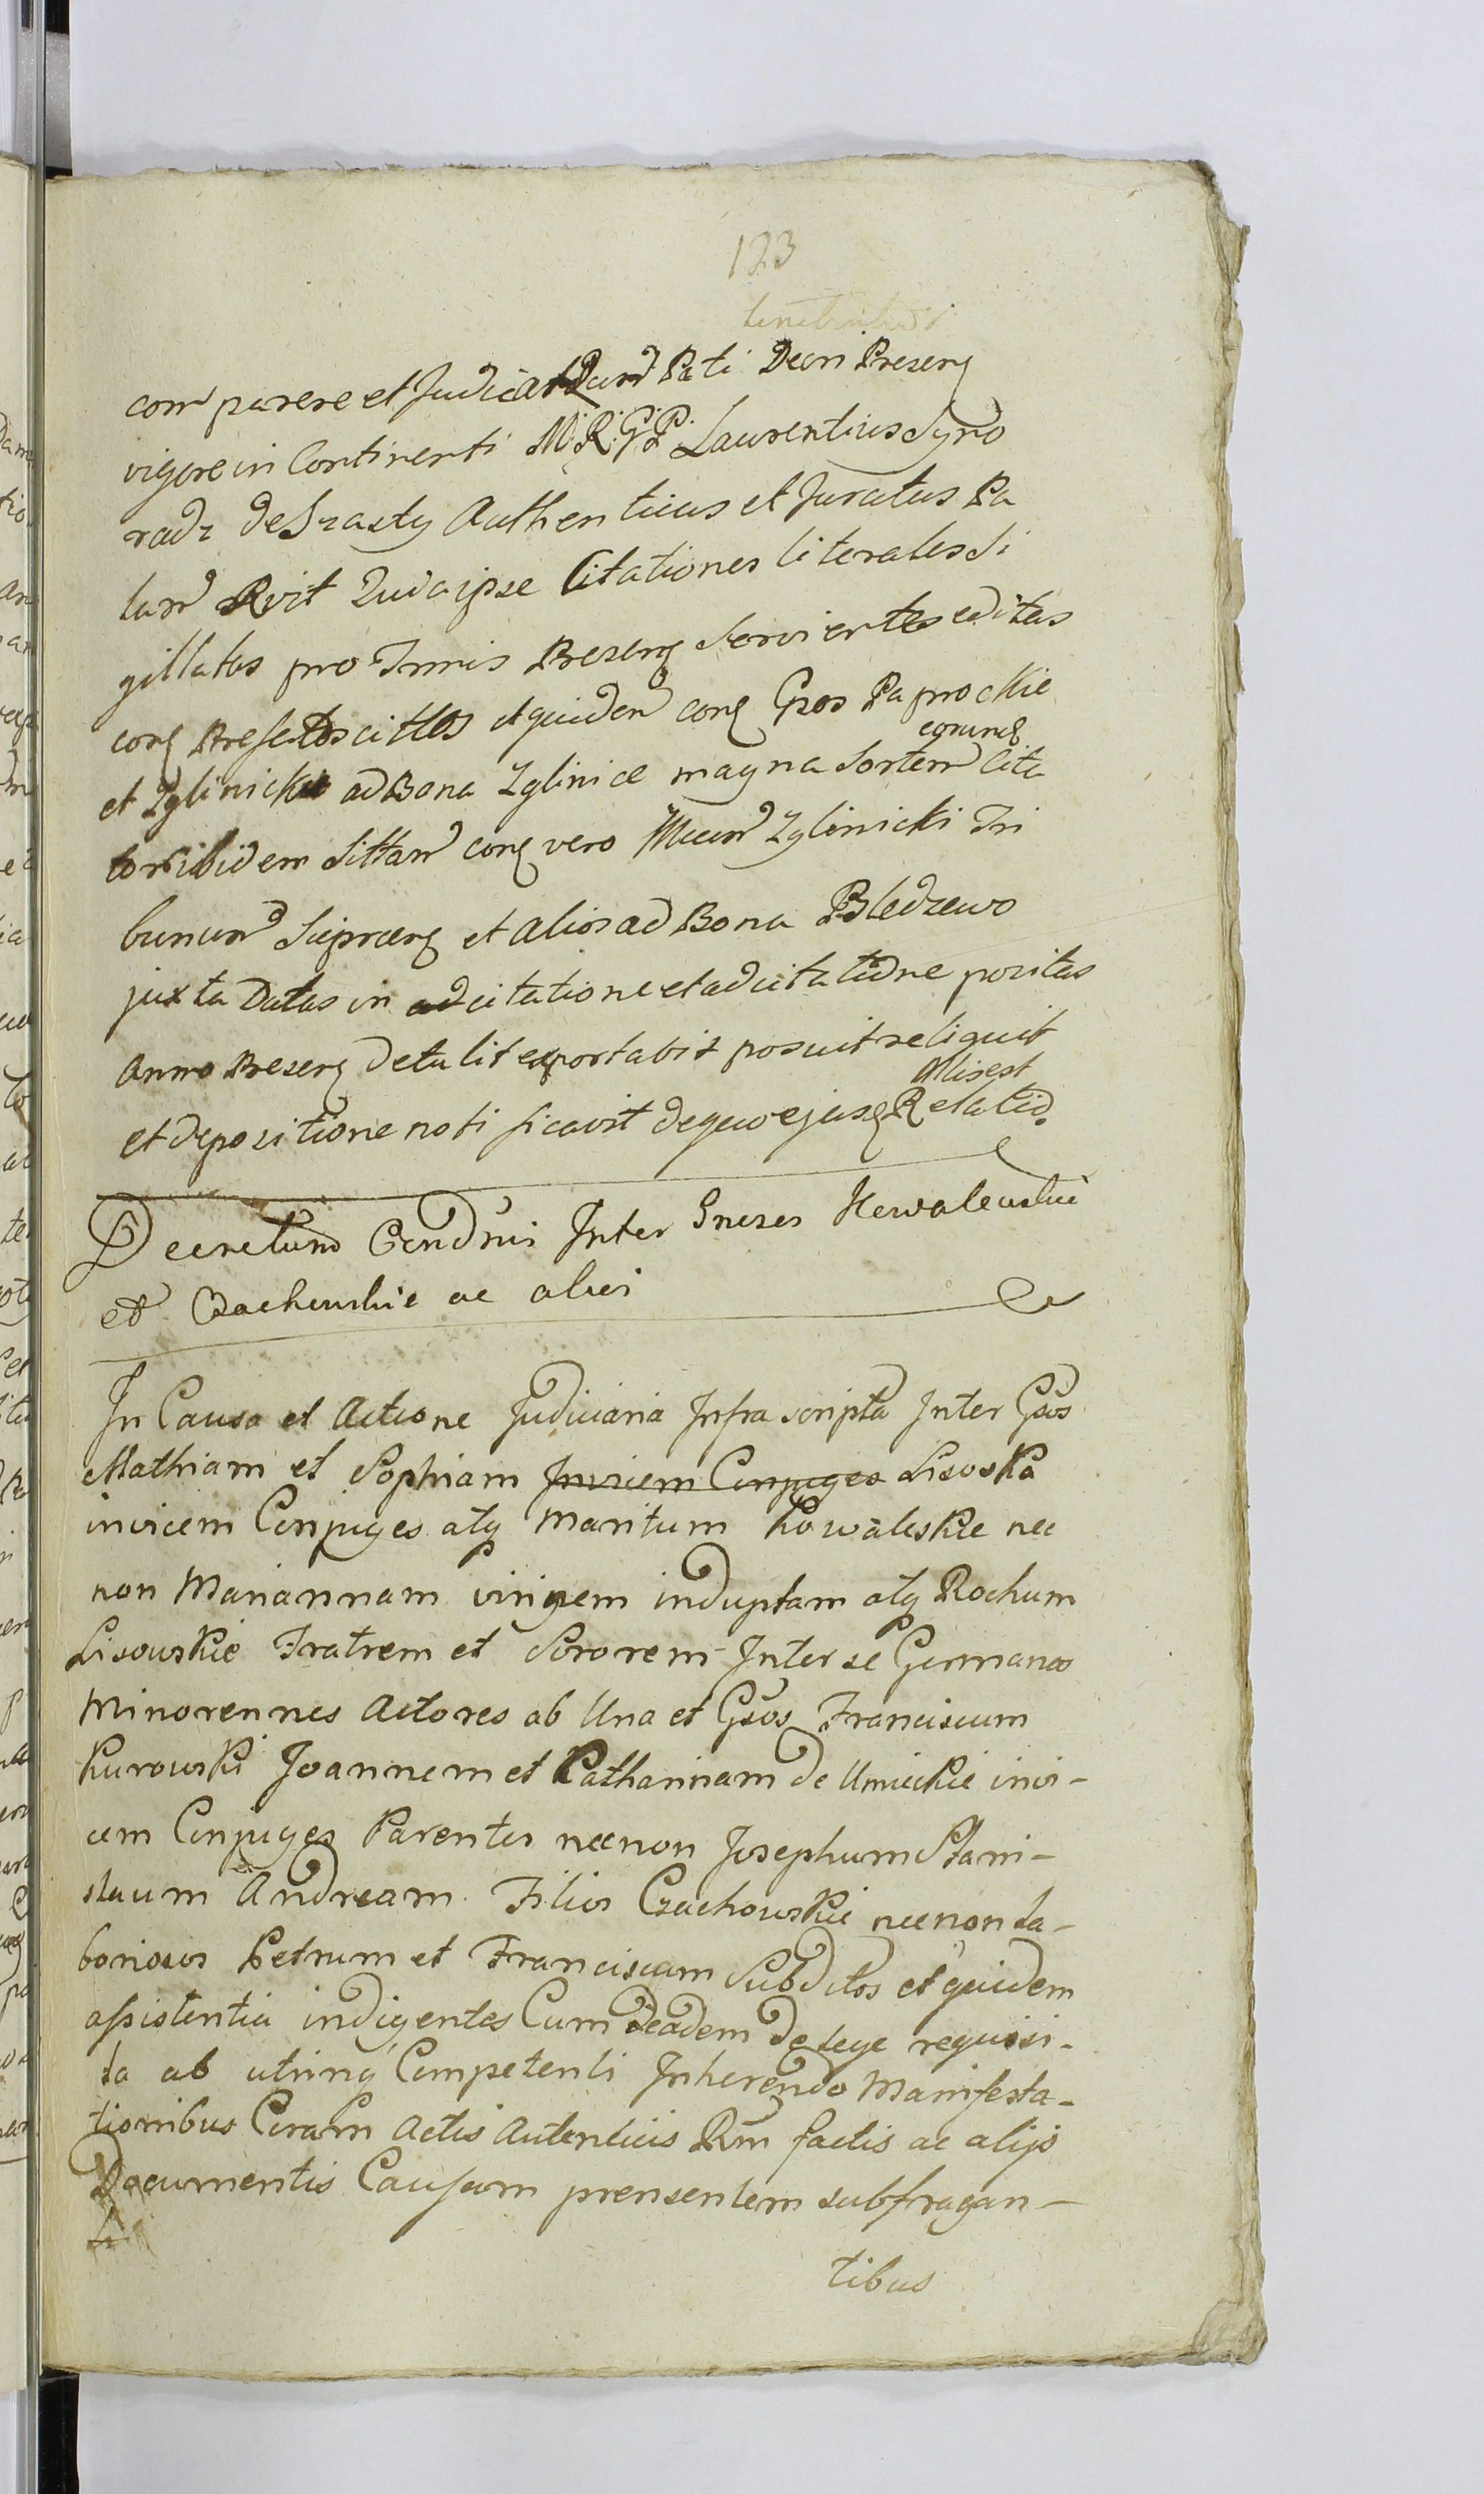 123
comparere et Judicat Pati Decri Presens
vigore in Continenti M. R. G. P. Laurentius Syno
radz de Szasty Authenticus et Juratus Pa
lam Rvit Quia ipse Citationes literales si
gillatas pro Tmnis Presens Servientes editas
conq citttos et quidem conq Gsos Paprockie
eorunq
et Zglinickie ad Bona Zglinice magna Sortem Cita
ibidem Sittam conq vero Mcum Zglinicki Tri
bunum Sieprcens et alios ad Bona Bledzewo
juxta Datas in adcitatione et adcitatione positas
Anno Presens detulit exportavit posuit reliquit
Mis est
et depositione notificavit de quo ejusq Relatio
Decretum Condnis Inter Gneros Kowalewskie
et Czachowskie ac alios
In Causa et Actione Judiciaria Infra scripta Inter Gsos
Mathiam et Sophiam Invicem Conjuges Lisoska
invicem Conjuges atq Maritum Kowaleskie nec
non Mariannam virginem induptam atq Rochum
Lisowskie Fratrem et Sororem Inter se Germanos
Minorennes Actores ab Una et Gsos Franciscum
Kurowski Joannem et Catharinam de Umieckie invi-
cem Conjuges Parentes necnon Josephum Stani-
slaum Andream Filios Czachowskie necnon La-
boriosos Petrum et Franciscum Subditos et quidem
assistentia indigentes Cum eadem de lege requisi-
ta ab utrinq Competenti Inherendo Manifesta-
tionibus Coram Actis Autenticis Rm factis ac alijs
Documentis Causam prensentem subfragan-
tibus